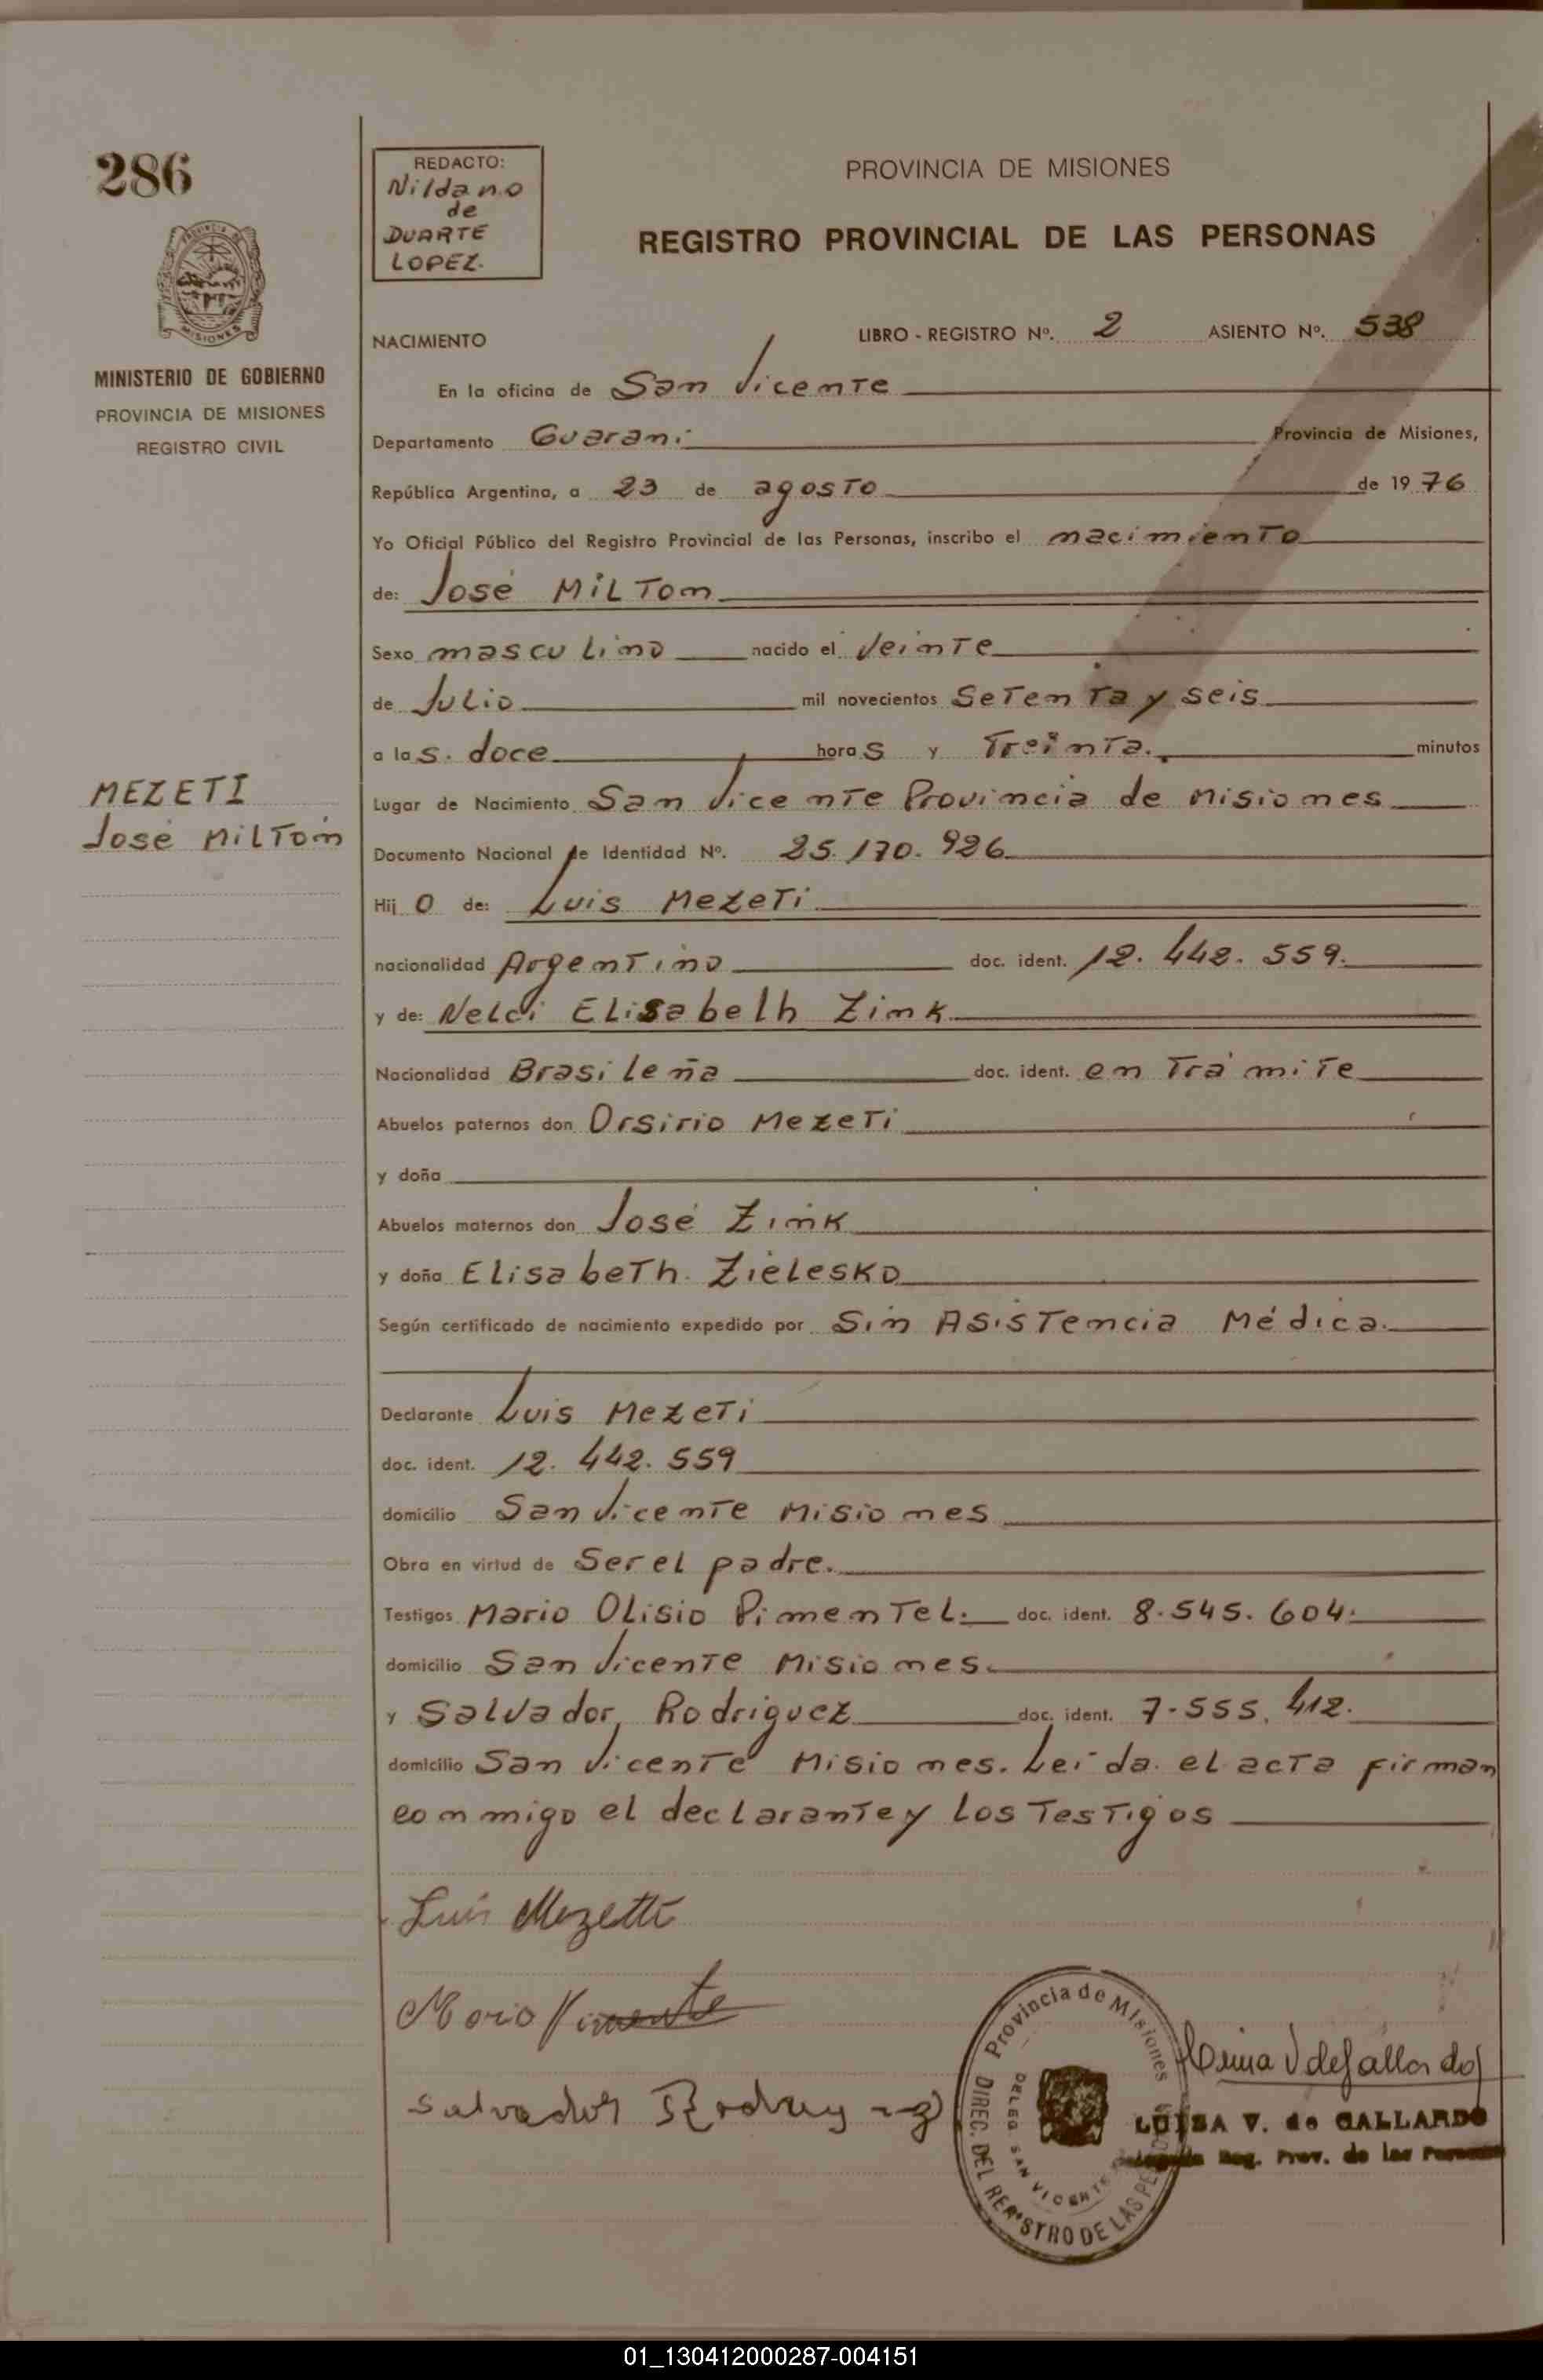 286
REDACTO:
Nildano
de
DUARTE
LOPEZ.
PROVINCIA DE MISIONES
REGISTRO PROVINCIAL DE LAS PERSONAS
MISIONES
MINISTERIO DE GOBIERNO
PROVINCIA DE MISIONES
REGISTRO CIVIL
NACIMIENTO LIBRO - REGISTRO Nº. 2 ASIENTO Nº. 538
En la oficina de San Vicente
Departamento Guarani Provincia de Misiones,
República Argentina, a 23 de agosto de 1976
Yo Oficial Público del Registro Provincial de las Personas, inscribo el nacimiento
de: José Milton
Sexo masculino nacido el veinte
de Julio mil novecientos setenta y seis
a las. doce horas y Treinta. minutos
MEZETI
José Milton
Lugar de Nacimiento San Vicente Provincia de Misiones
Documento Nacional de Identidad Nº. 25.170.926
Hijo de: Luis Mezeti
nacionalidad Argentino doc. ident. 12.442.559.
y de: Nelci Elisabelh Zink
Nacionalidad Brasileña doc. ident. en Trámite
Abuelos paternos don Orsirio Mezeti
y doña
Abuelos maternos don José Zink
y doña Elisabeth. Zielesko
Según certificado de nacimiento expedido por Sin Asistencia Médica.
Declarante Luis Mezeti
doc. ident. 12.442.559
domicilio San Vicente Misiones
Obra en virtud de Ser el padre.
Testigos Mario Olisio Pimentel. doc. ident. 8.545.604.
domicilio San Vicente Misiones.
y Salvador Rodriguez doc. ident. 7.555.412.
domicilio San Vicente Misiones. Leída el acta firman
conmigo el declarante y los Testigos
Luis Mezetti
Mario Pimente
Salvador
Provincia de Misiones
DIREC. DEL REGISTRO DE LAS PE
DELEG. SAN VICENTE
LUISA V. de GALLARDO
Delegada Reg. Prov. de las Personas
01_130412000287-004151